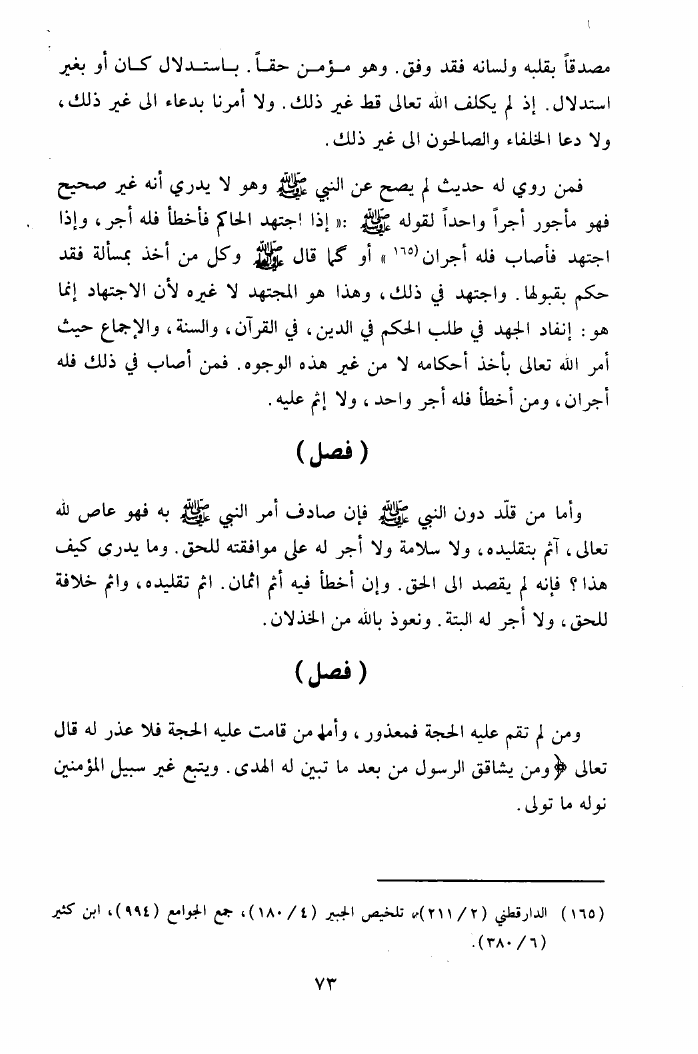 مصدقاً بقلبه ولسانه فقد وفق. وهو مـؤمـن حقـاً. بـاستـدلال كـان أو بغير
استدلال. إذ لم يكلف الله تعالى قط غير ذلك. ولا أمرنا بدعاء الى غير ذلك،
ولا دعا الخلفاء والصالحون الى غير ذلك.
فمن روي له حديث لم يصح عن النبي ﷺ وهو لا يدري أنه غير صحيح
فهو مأجور أجراً واحداً لقوله ﷺ :« إذا اجتهد الحاكم فأخطأ فله أجر، وإذا
اجتهد فأصاب فله أجران(١٦٥) » أو كما قال ﷺ وكل من أخذ بمسألة فقد
حكم بقبولها. واجتهد في ذلك، وهذا هو المجتهد لا غيره لأن الاجتهاد إنما
هو: إنفاد الجهد في طلب الحكم في الدين، في القرآن، والسنة، والإجماع حيث
أمر الله تعالى بأخذ أحكامه لا من غير هذه الوجوه. فمن أصاب في ذلك فله
أجران، ومن أخطأ فله أجر واحد، ولا إثم عليه.
(فصل)
وأما من قلّد دون النبي ﷺ فإن صادف أمر النبي ﷺ به فهو عاص لله
تعالى، آثم بتقليده، ولا سلامة ولا أجر له على موافقته للحق. وما يدرى كيف
هذا؟ فإنه لم يقصد الى الحق. وإن أخطأ فيه أثم اثمان. اثم تقليده، واثم خلافة
للحق، ولا أجر له البتة. ونعوذ بالله من الخذلان.
(فصل)
ومن لم تقم عليه الحجة فمعذور، وأما من قامت عليه الحجة فلا عذر له قال
تعالى ﴿ومن يشاقق الرسول من بعد ما تبين له الهدى. ويتبع غير سبيل المؤمنين
نوله ما تولى.
(١٦٥) الدارقطني (٢١١/٢)، تلخيص الحبير (١٨٠/٤)، جمع الجوامع (٩٩٤)، ابن كثير
(٣٨٠/٦).
٧٣